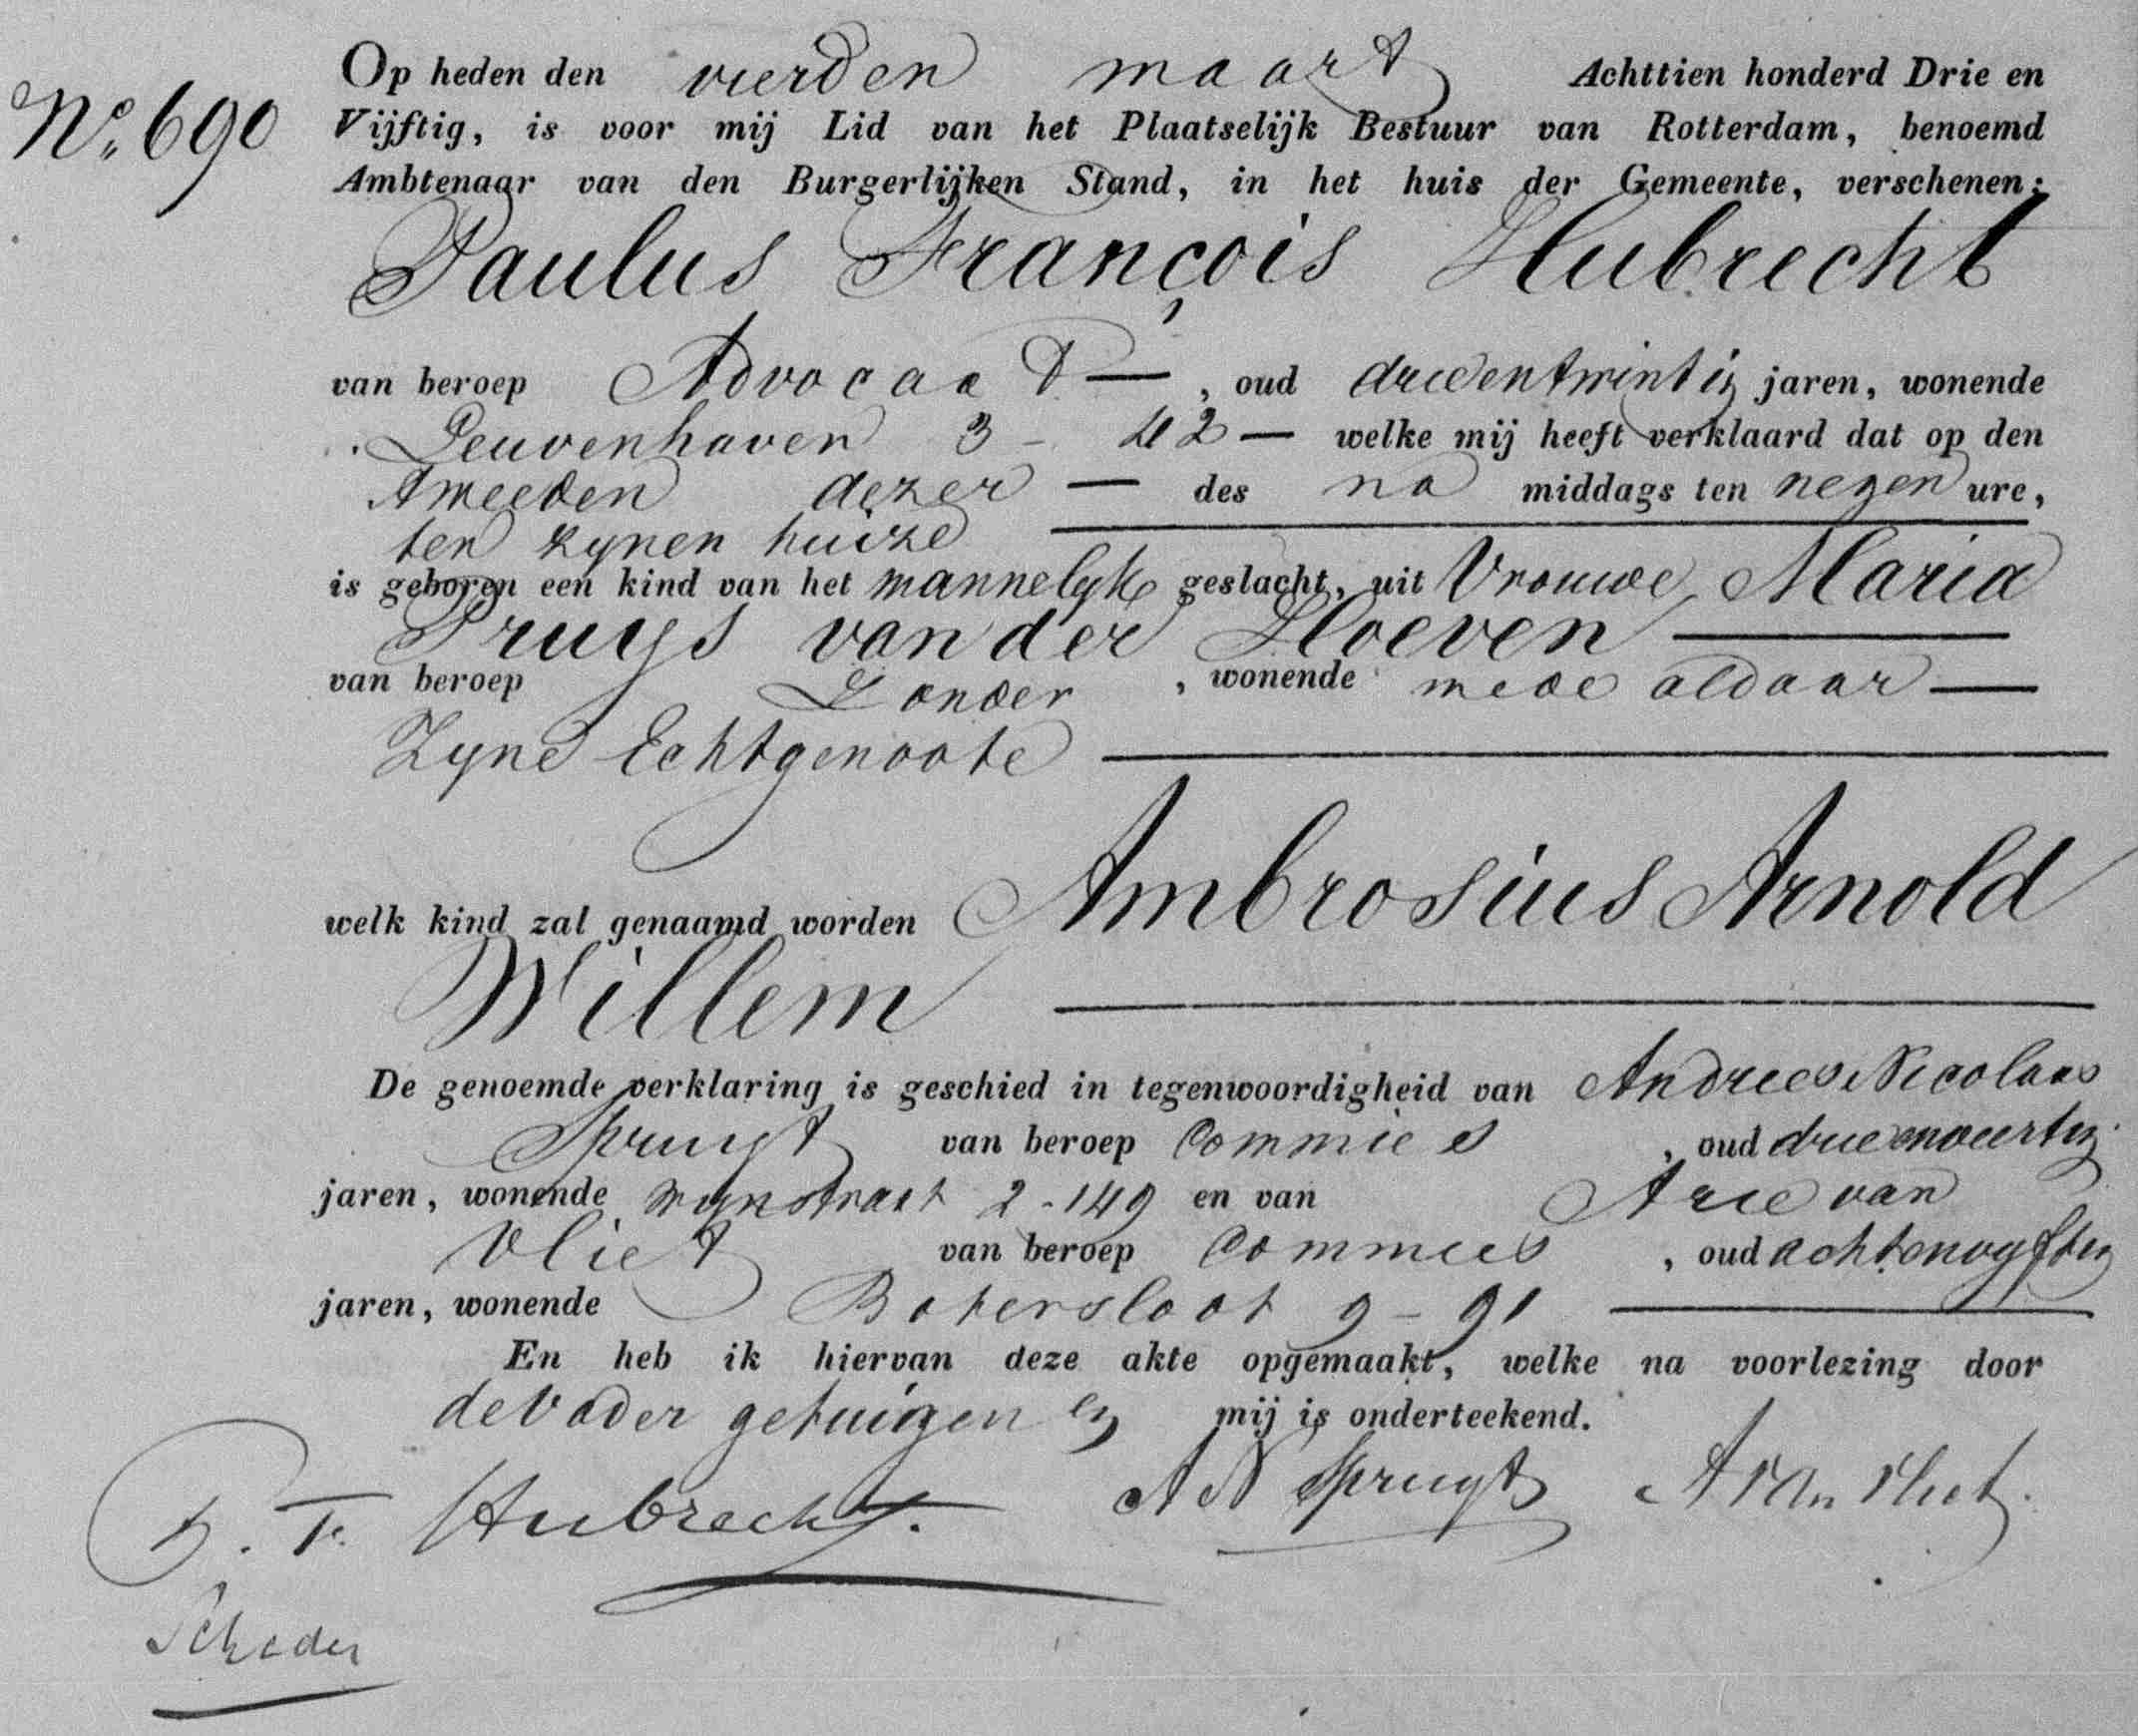 Op heden den vierden maart Achttien honderd Drie en
No. 690
Vijftig, is voor mij Lid van het Plaatselijk Bestuur van Rotterdam, benoemd
Ambtenaar van den Burgerlijken Stand, in het huis der Gemeente, verschenen:
Paulus François Hubrecht
van beroep Advocaat —, oud drieentwintig jaren, wonende
Leuvenhaven 3 - 42 — welke mij heeft verklaard dat op den
tweeden dezer — des na middags ten negen ure,
ten zynen huize
is geboren een kind van het mannelyk geslacht, uit Vrouwe Maria
Pruys van der Hoeven —
van beroep Zonder, wonende mede aldaar —
Zyne Echtgenoote —
welk kind zal genaamd worden Ambrosius Arnold
Willem —
De genoemde verklaring is geschied in tegenwoordigheid van Andries Nicolaas
Spruyt van beroep Commies, oud drieenveertig
jaren, wonende wynstraat 2-149 en van Arie van
Vliet van beroep Commies, oud achtenvyftig
jaren, wonende Botersloot 9-91 —
En heb ik hiervan deze akte opgemaakt, welke na voorlezing door
de Vader getuigen en mij is onderteekend.
P. F. Hubrecht. A N Spruyt A van Vliet.